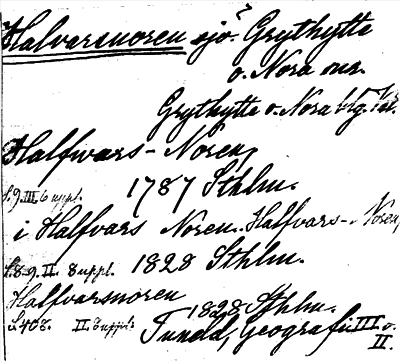 Halvarsnoren sjö. Grythytte
o. Nora snr.
Grythytte o. Nora
Halfvars-Noren,
s. 9. III. 6 uppl. 1787 Sthlm.
i Halfvars Noren. Halfvars-Noren,
II. 8 uppl. 1828 Sthlm.
Halfvarsnoren 1828 Sthlm.
s. 408. II. 8 uppl. Tuneld, Geografi III o.
II.